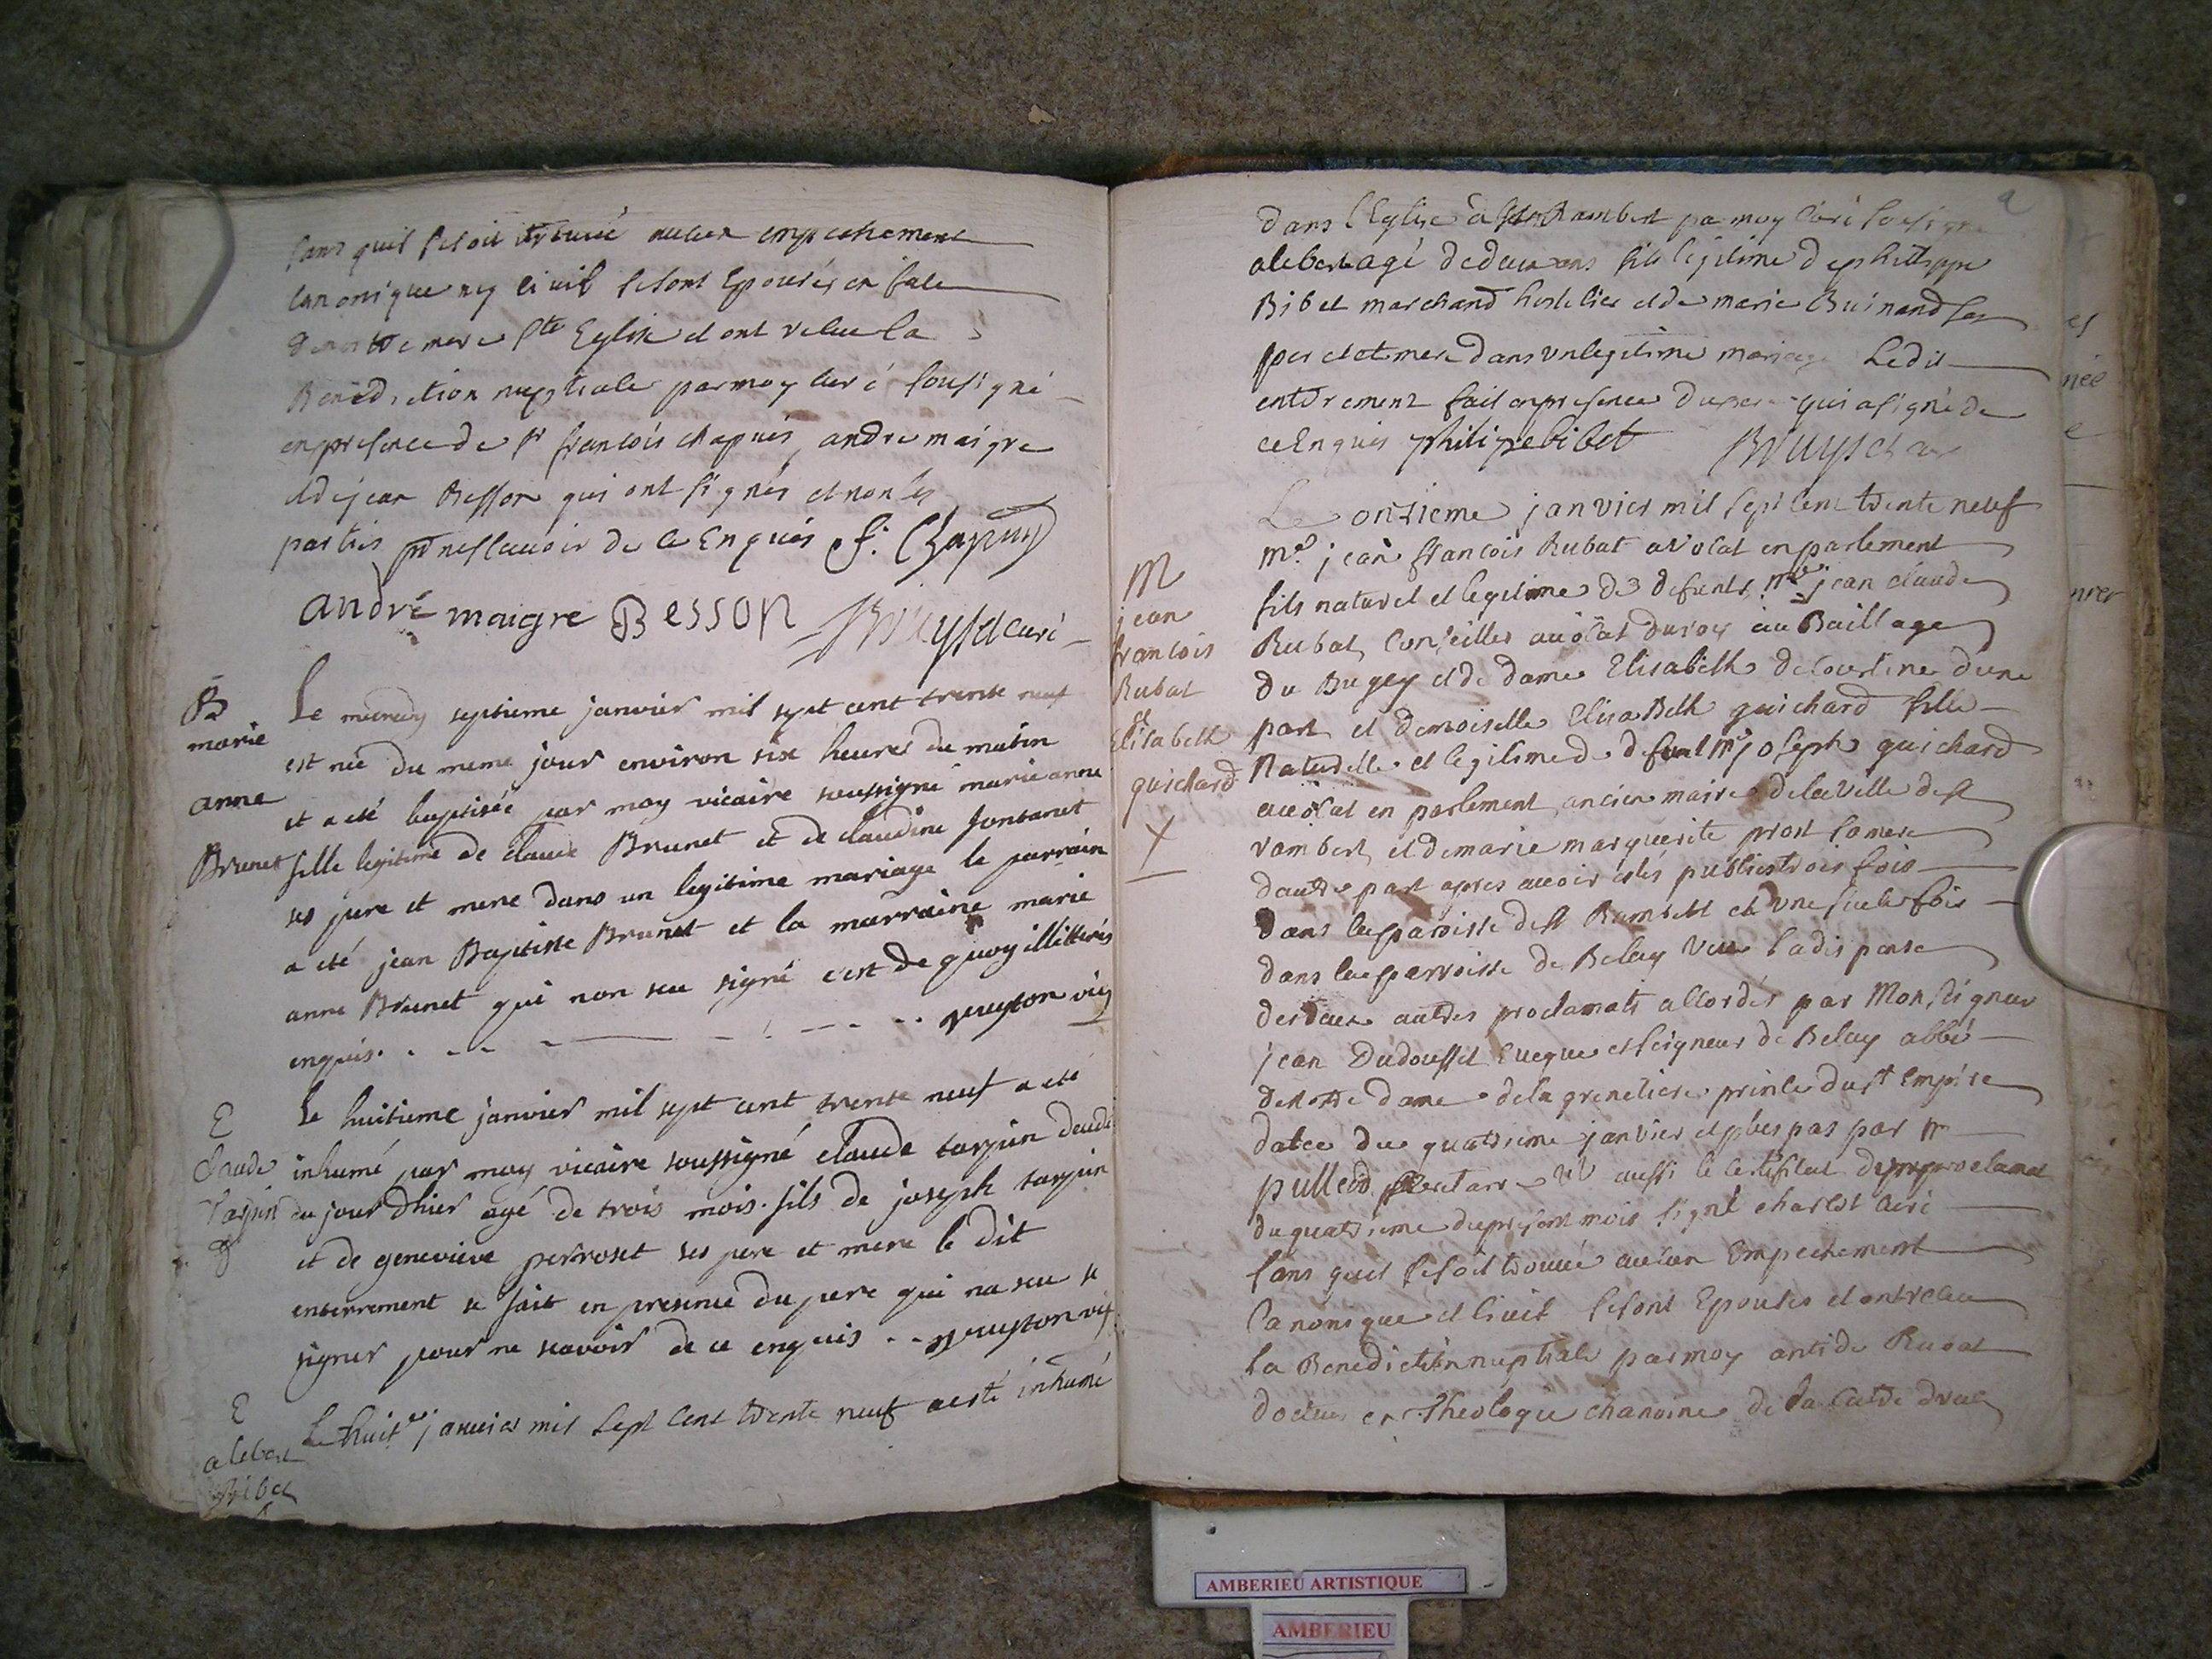 sans quil se soit trouvé aucun empechement
canonique ny civil se sont Epousés en face
de notre mere Ste Eglise et ont receu la
Benediction nuptiale par moy curé sousigné
en presence de sr francois chapuis, andre maigre
et de jean Besson qui ont signés et non les
parties pr ne scavoir de ce Enquis f. Chapuis
andré maigre Besson Bruyset curé
B
marie
anne
Brunet
Le mecredy septieme janvier mil sept cent trente neuf
est née du meme jour environ six heures du matin
et a eté baptisée par moy vicaire soussigné marie anne
fille legitime de claude Brunet et de claudine fontanet
ses pere et mere dans un legitime mariage le parrain
a eté jean Baptiste Brunet et la marraine marie
anne Brunet qui non sceu signé c'est de quoy illitterés
enquis. gruyton vic
E
claude
Tarpin
Le huitieme janvier mil sept cent trente neuf a eté
inhumé par moy vicaire soussigné claude tarpin decedé
du jour dhier agé de trois mois. fils de joseph tarpin
et de genevieve perroset ses pere et mere le dit
enterrement se fait en presence du pere qui na sceu
signer pour ne scavoir de ce enquis . . gruyton vic
E
alebert
Bibet
Le huite janvier mil sept cent trente neuf a esté inhumé
dans l'Eglise a st Rambert par moy Curé sousigné
alebert agé de deux ans fils legitime de philippe
Bibet marchand hostelier et de marie Guinand ses
pere et mere dans un legitime mariage Ledit
enterement fait en presence du pere qui a signé de
ce Enquis philipe bibet Bruyset curé
M
jean
francois
Rubat
et
Elisabeth
guichard
Le onzieme janvier mil sept cent trente neuf
me jean francois Rubat avocat en parlement
fils naturel et legitime de defunts me jean claude
Rubat, Conseiller avocat du roy au Baillage
du Bugey et de dame Elisabeth de courtine dune
part et demoiselle Elisabeth guichard fille
Naturelle et legitime de defunt me joseph guichard
avocat en parlement ancien maire de la ville de st
rambert, et de marie marguerite prost sa mere
dautre part apres avoir estés publies trois fois
dans la paroisse de st Rambert et une seule fois
dans la parroisse de Belay veu la dispense
des deux autres proclamats accordés par Monseigneur
jean Dudousset Eveque et seigneur de Belay abbé
de notre dame de la grenetiere prince du st Empire
datée du quatrieme janvier et plus bas par mr
pullied secretaire veu aussi le certificat de proclamat
du quatrieme du present mois signé charlet curé
sans quil se soit trouvé aucun Empechement
Canonique et Civil se sont Epousés et ont receu
la Benediction nuptiale par moy antide Rubat
docteur en Theologie chanoine de la catedrale
AMBERIEU ARTISTIQUE
AMBERIEU